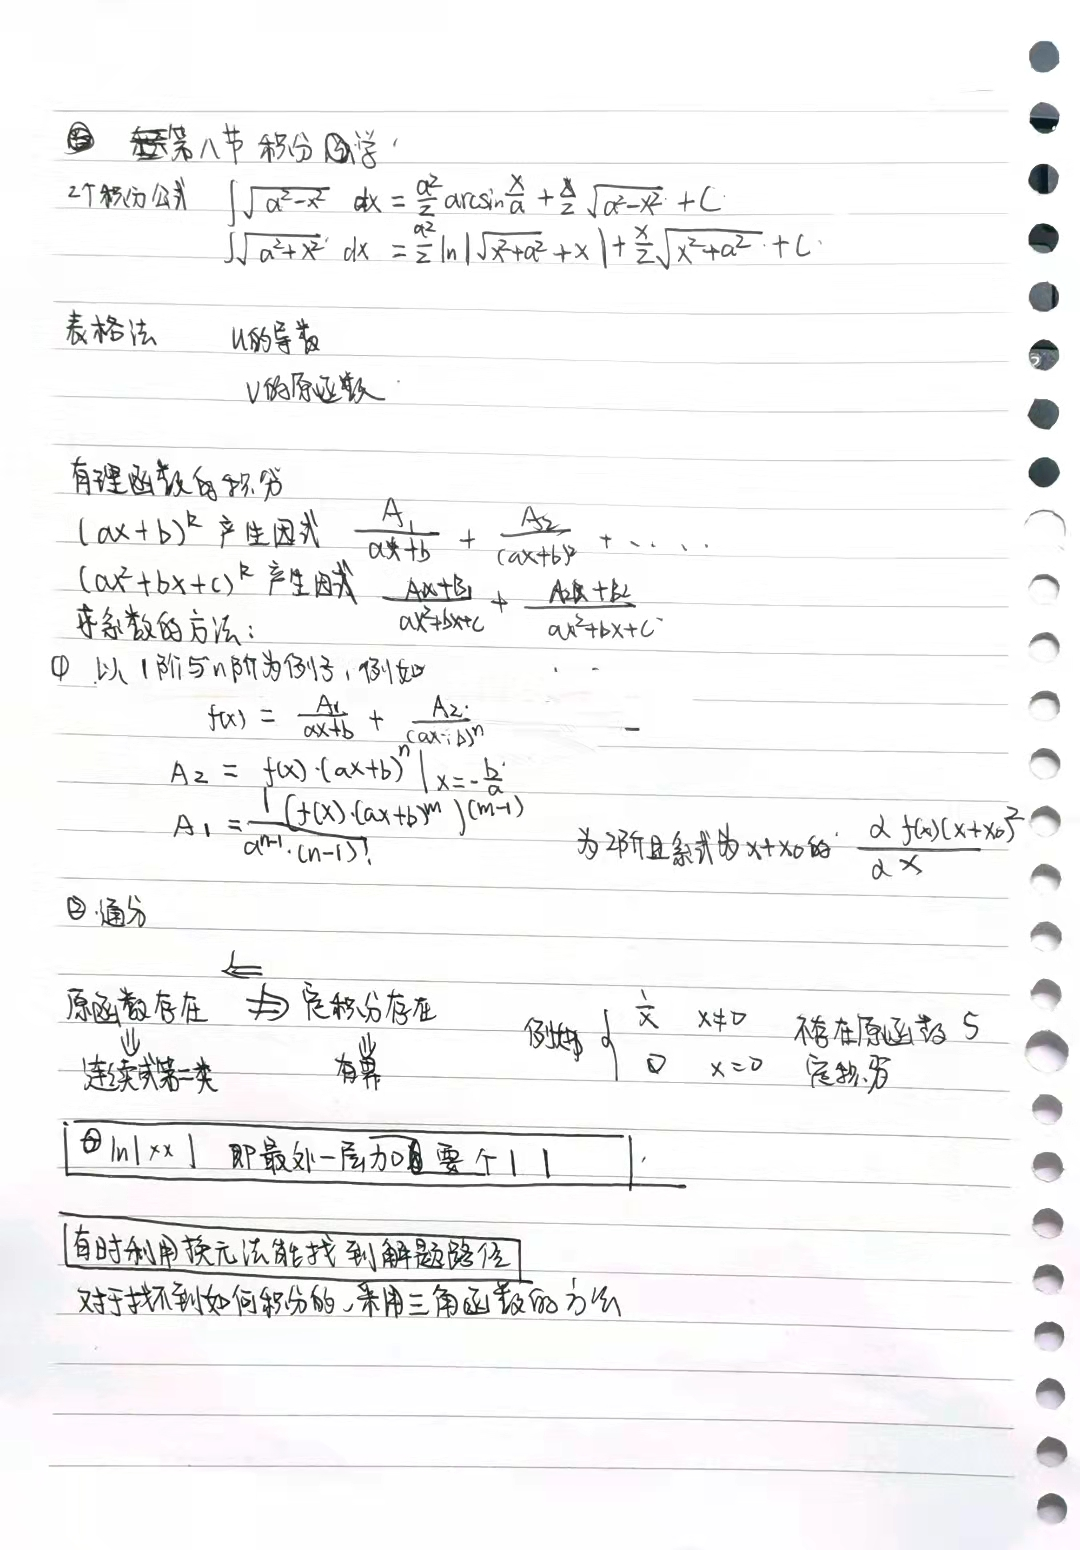 第八节 积分学
2个积分公式 ∫√(a²-x²) dx = a²/2 arcsin x/a + x/2 √(a²-x²) + C
∫√(a²+x²) dx = a²/2 ln|√(x²+a²) + x| + x/2 √(x²+a²) + C
表格法 u的导数
v的原函数
有理函数的积分
(ax+b)^k 产生因式 A₁/(ax+b) + A₂/(ax+b)² + .....
(ax²+bx+c)^k 产生因式 (A₁x+B₁)/(ax²+bx+c) + (A₂x+B₂)/(ax²+bx+c)
求系数的方法:
① 以1阶与n阶为例子,例如
f(x) = A₁/(ax+b) + A₂/(ax+b)^n
A₂ = f(x)·(ax+b)^n | x=-b/a
A₁ = 1/(a^(n-1)·(n-1)!) (f(x)·(ax+b)^m)^(m-1)
为2阶且系式为x+x₀的 d f(x)(x+x₀)²/dx
② 通分
⇐
原函数存在 ⇏ 定积分存在
⇓ ⇓
连续或第二类 有界
例如 { 1/x x≠0 不存在原函数与
0 x=0 定积分
ln|xx| 即最外一层加 要个| |
有时利用换元法能找到解题路径
对于找不到如何积分的,采用三角函数的方法